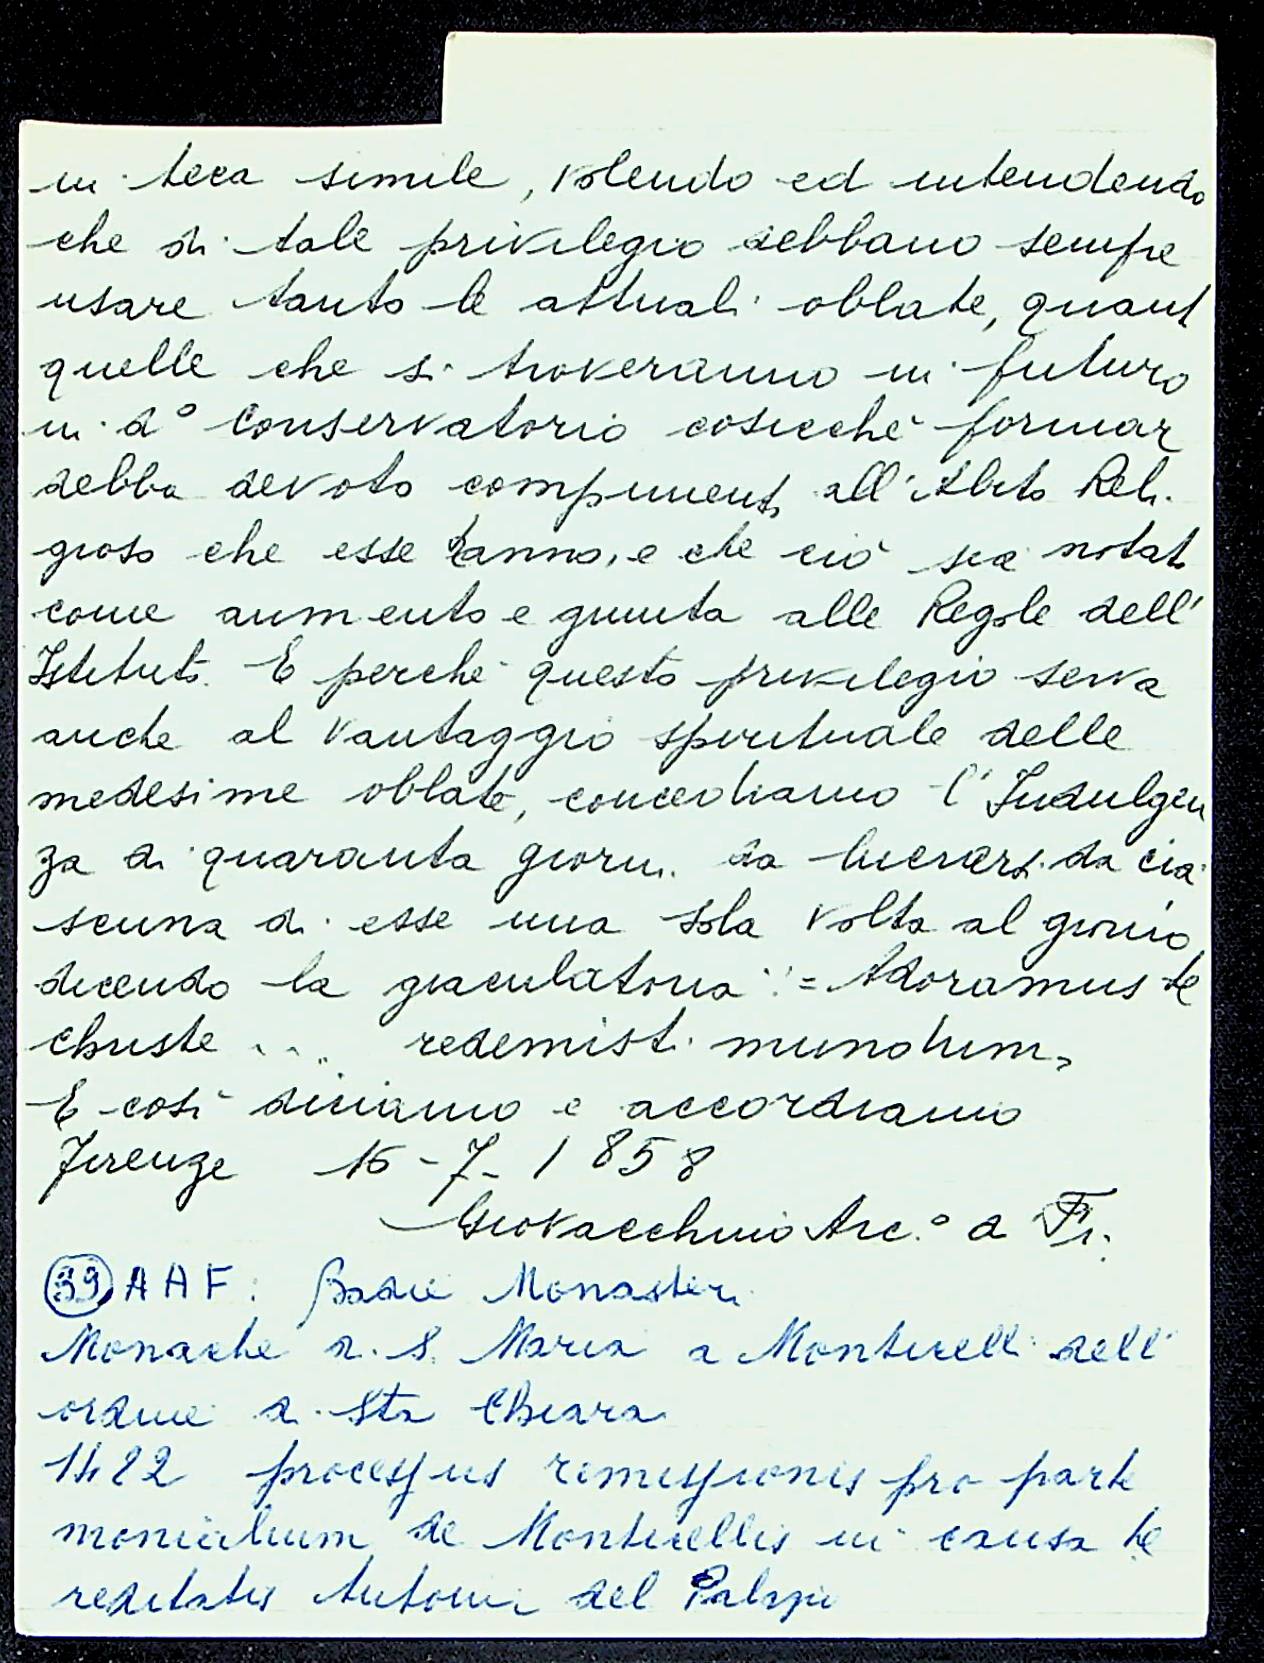 in teca simile, volendo ed intendendo
che di tale privilegio debbano sempre
usare tanto le attuali oblate, quant
quelle che si troveranno in futuro
in d° Conservatorio cosicchè formar
debba devoto compimento all'Abito Reli
gioso che esse hanno, e che ciò sia notato
come aumento e giunta alle Regole dell'
Istituto. E perchè questo privilegio serva
anche al vantaggio spirituale delle
medesime oblate, concediamo l'Indulgen
za di quaranta giorni da lucrarsi da cia
scuna di esse una sola volta al giorno
dicendo la giaculatoria: = Adoramus te
Christe .... redemisti mundum,
E così diciamo e accordiamo
Firenze 16-7-1858
Giovacchino Arc.° di Fi.
39 AAF: Badie Monasteri
Monache di S. Maria a Monticelli dell'
ordine di Sta Chiara
1482 processus remissionis pro parte
monialium de Monticellis in causa he
reditatis Antonii del Palagio